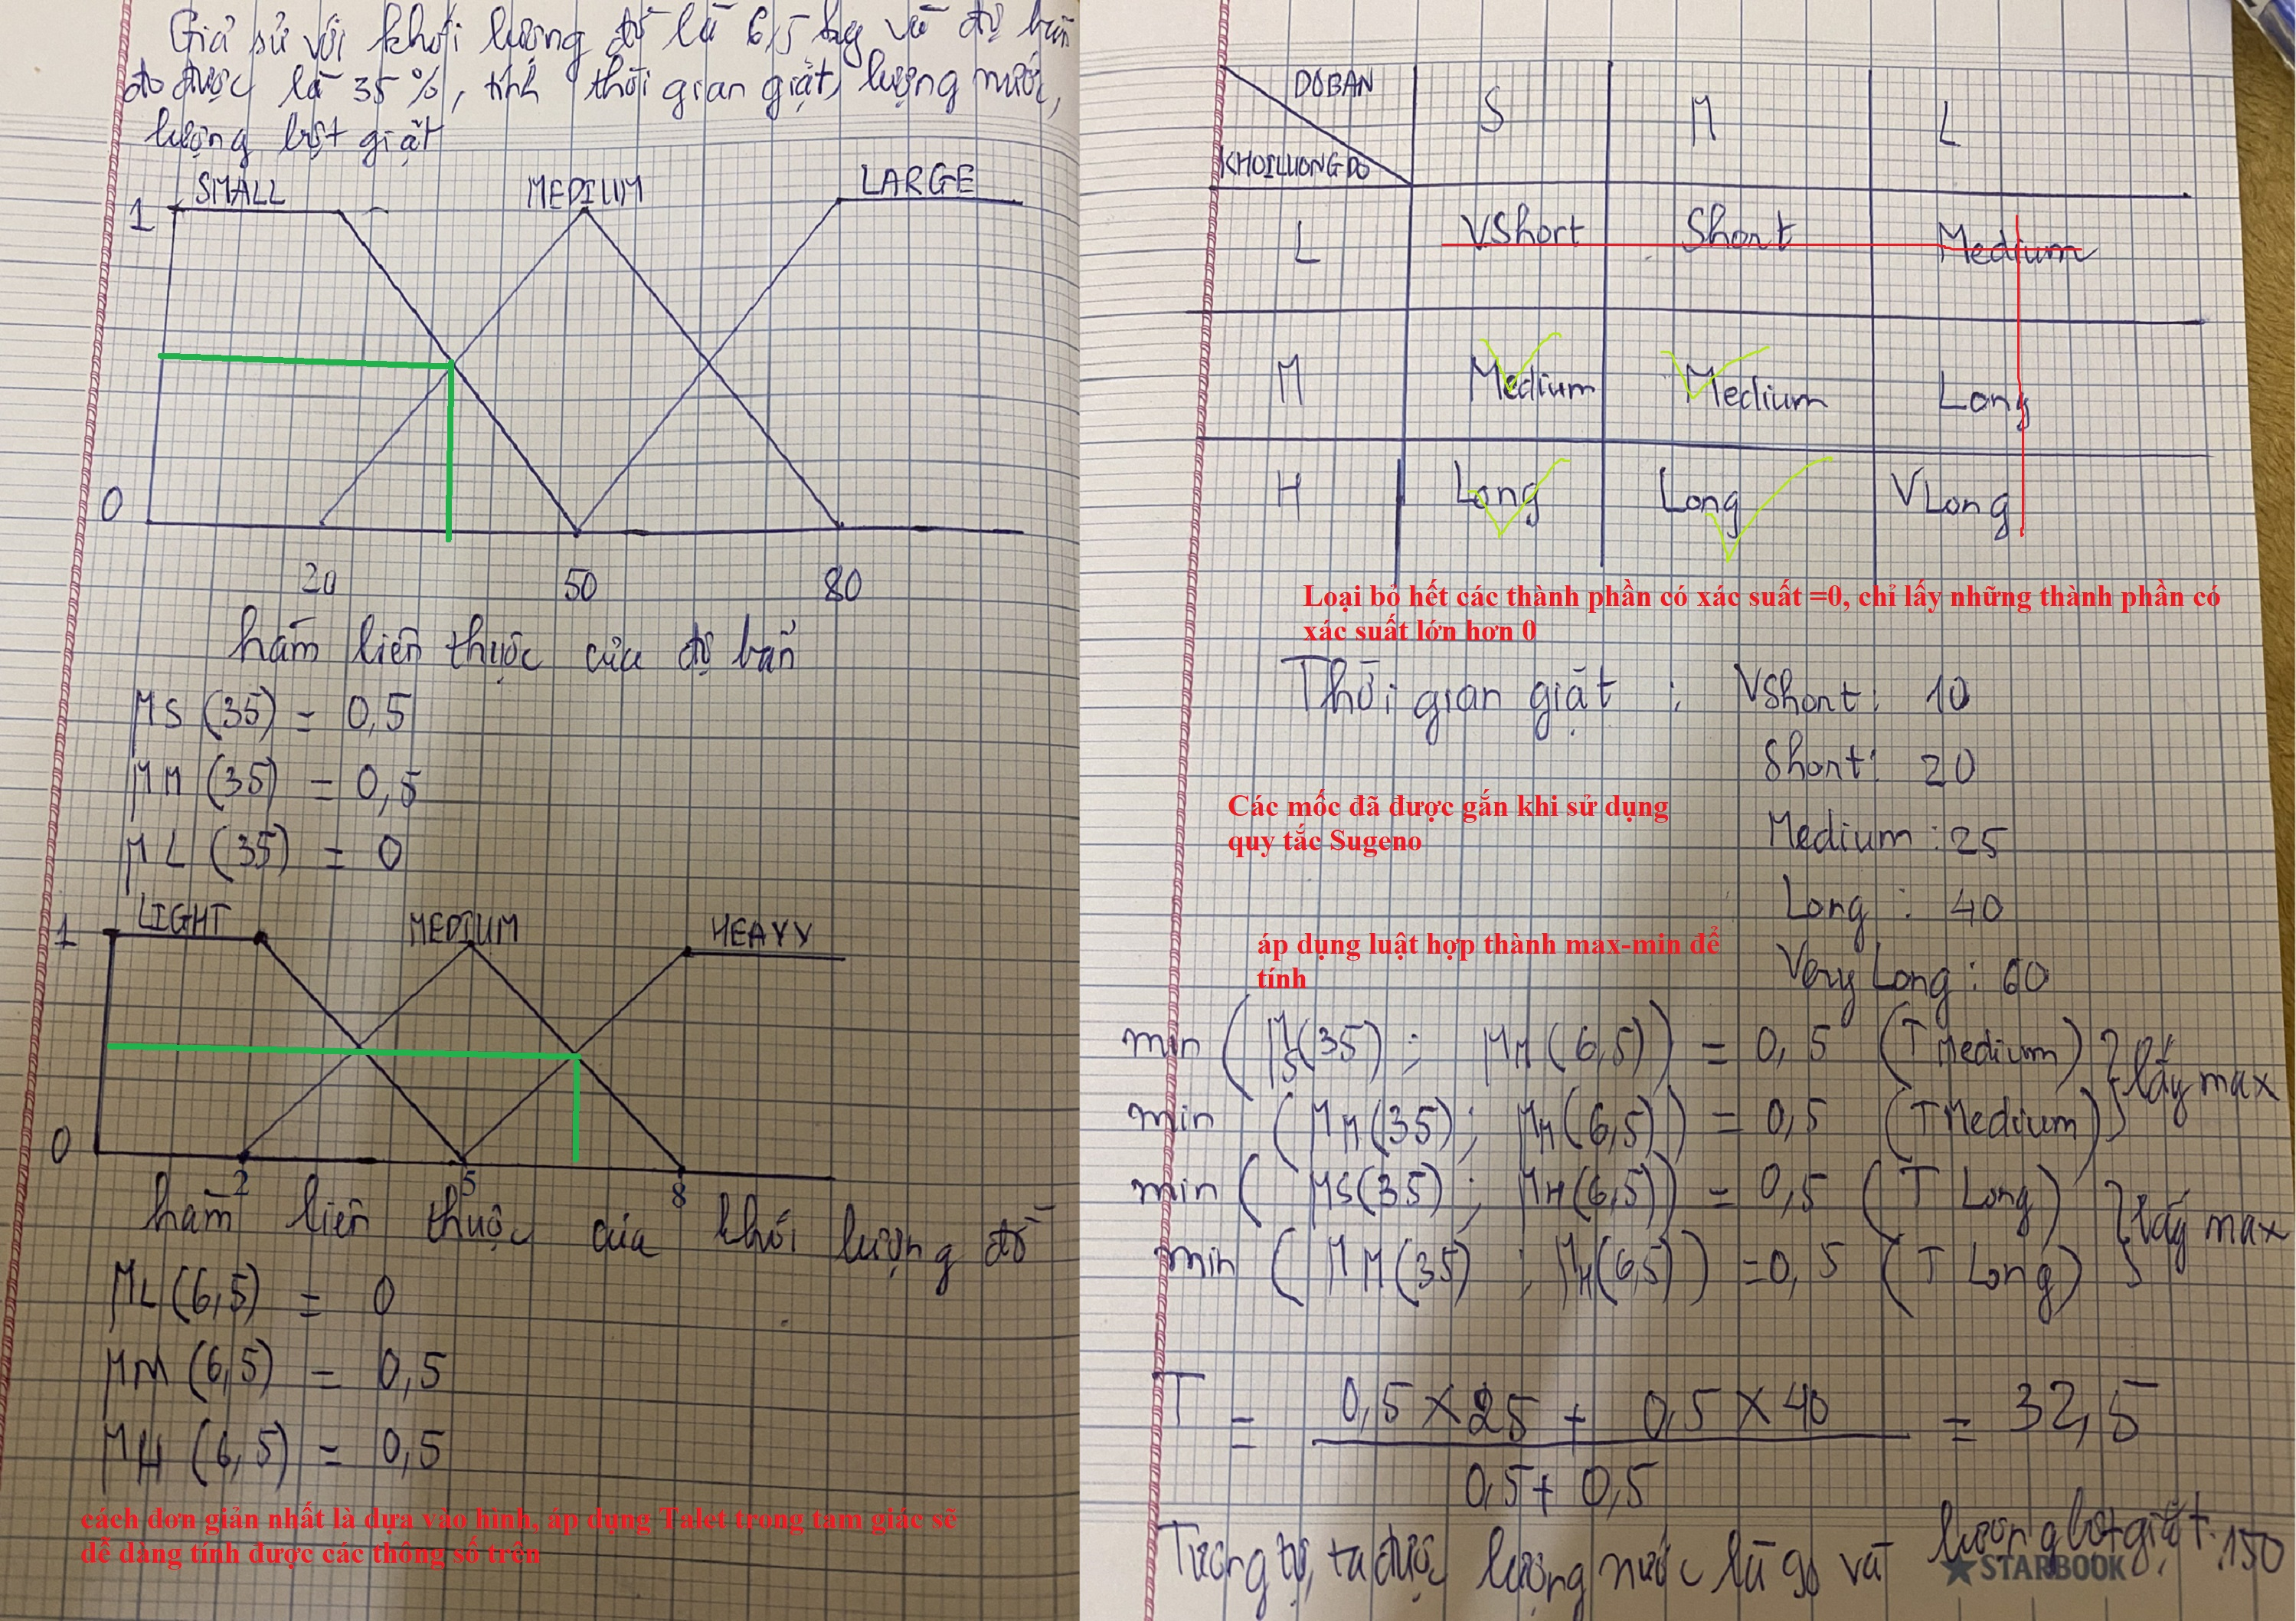 Giả sử với khối lượng đồ là 6,5 kg và độ bẩn
đo được là 35%, tính thời gian giặt, lượng nước,
lượng bột giặt
SMALL MEDIUM LARGE
1
0
20 50 80
hàm liên thuộc của độ bẩn
μS (35) = 0,5
μM (35) = 0,5
μL (35) = 0
LIGHT MEDIUM HEAVY
1
0
2 5 8
hàm liên thuộc của khối lượng đồ
μL (6,5) = 0
μM (6,5) = 0,5
μH (6,5) = 0,5
cách đơn giản nhất là dựa vào hình, áp dụng Talet trong tam giác sẽ
dễ dàng tính được các thông số trên
DOBAN S M L
KHOILUONGDO
L VShort Short Medium
M Medium Medium Long
H Long Long VLong
Loại bỏ hết các thành phần có xác suất =0, chỉ lấy những thành phần có
xác suất lớn hơn 0
Thời gian giặt : VShort: 10
Short: 20
Các mốc đã được gắn khi sử dụng
quy tắc Sugeno
Medium : 25
Long : 40
áp dụng luật hợp thành max-min để
tính
Very Long : 60
min ( μS(35) ; μM (6,5) ) = 0,5 (T Medium) } lấy max
min ( μM (35) ; μM (6,5) ) = 0,5 (T Medium)
min ( μS(35) ; μH (6,5) ) = 0,5 (T Long) } lấy max
min ( μM (35) ; μH (6,5) ) = 0,5 (T Long)
T = 0,5 × 25 + 0,5 × 40 = 32,5
0,5 + 0,5
Tương tự, ta được lượng nước là 90 và lượng bột giặt 150
STARBOOK